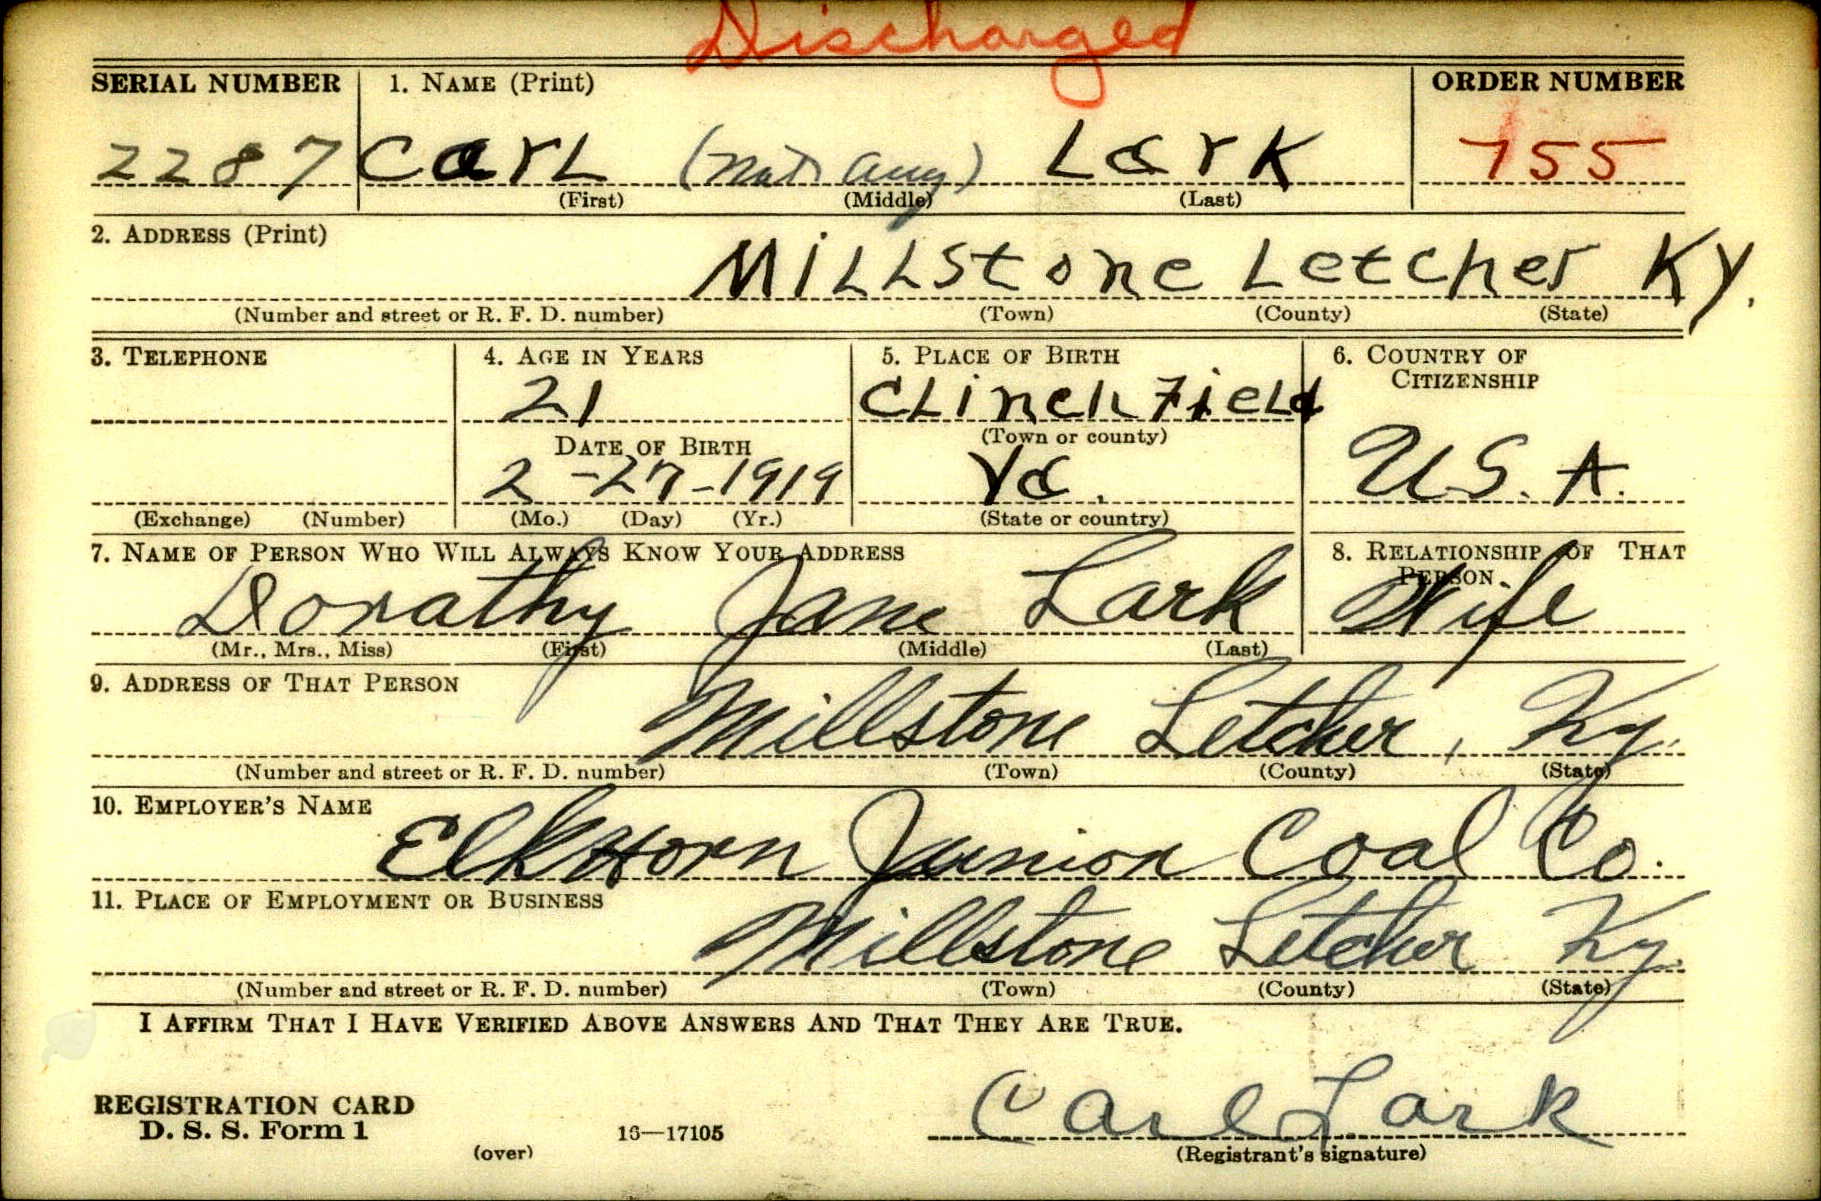 Discharged
SERIAL NUMBER 1. NAME (Print) ORDER NUMBER
2287 Carl (Not any) Lark 755
(First) (Middle) (Last)
2. ADDRESS (Print)
Millstone Letcher Ky.
(Number and street or R. F. D. number) (Town) (County) (State)
3. TELEPHONE 4. AGE IN YEARS 5. PLACE OF BIRTH 6. COUNTRY OF
CITIZENSHIP
21 Clinchfield
DATE OF BIRTH (Town or county)
2-27-1919 Va. U.S.A.
(Exchange) (Number) (Mo.) (Day) (Yr.) (State or country)
7. NAME OF PERSON WHO WILL ALWAYS KNOW YOUR ADDRESS 8. RELATIONSHIP OF THAT
PERSON
Dorathy Jane Lark Wife
(Mr., Mrs., Miss) (First) (Middle) (Last)
9. ADDRESS OF THAT PERSON
Millstone Letcher, Ky.
(Number and street or R. F. D. number) (Town) (County) (State)
10. EMPLOYER'S NAME
ElkHorn Junior Coal Co.
11. PLACE OF EMPLOYMENT OR BUSINESS
Millstone Letcher Ky.
(Number and street or R. F. D. number) (Town) (County) (State)
I AFFIRM THAT I HAVE VERIFIED ABOVE ANSWERS AND THAT THEY ARE TRUE.
REGISTRATION CARD Carl Lark
D. S. S. Form 1 16—17105
(over) (Registrant's signature)